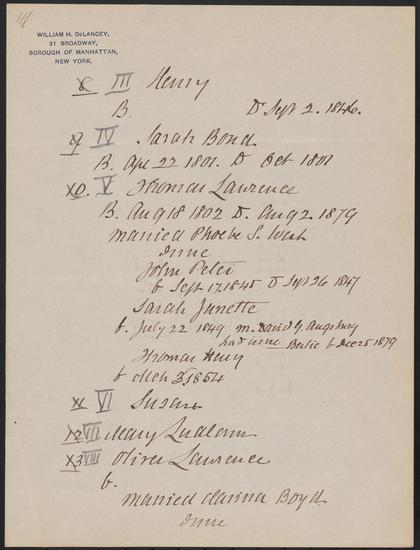 4
WILLIAM H. DeLANCEY,
31 BROADWAY,
BOROUGH OF MANHATTAN,
NEW YORK.
8 III Henry
B. D Sept 2. 1846.
9 IV Sarah Bond
B. Apr 22 1801. D Oct 1801
10. V Thomas Lawrence
B. Aug 18 1802 D. Aug 2. 1879
married Phoebe S.
Issue
John Peter
b Sept. 17. 1845 D Sept 26 1847
Sarah Janette
b. July 22 1849 m. David G. Augsbury
had issue Bertie b Dec 25 1879
Thomas Henry
b Mch 3 1854
XI VI Susan
12 VII Mary Ludlam
13 VIII Oliver Lawrence
b.
married Clarina Boyd
Issue